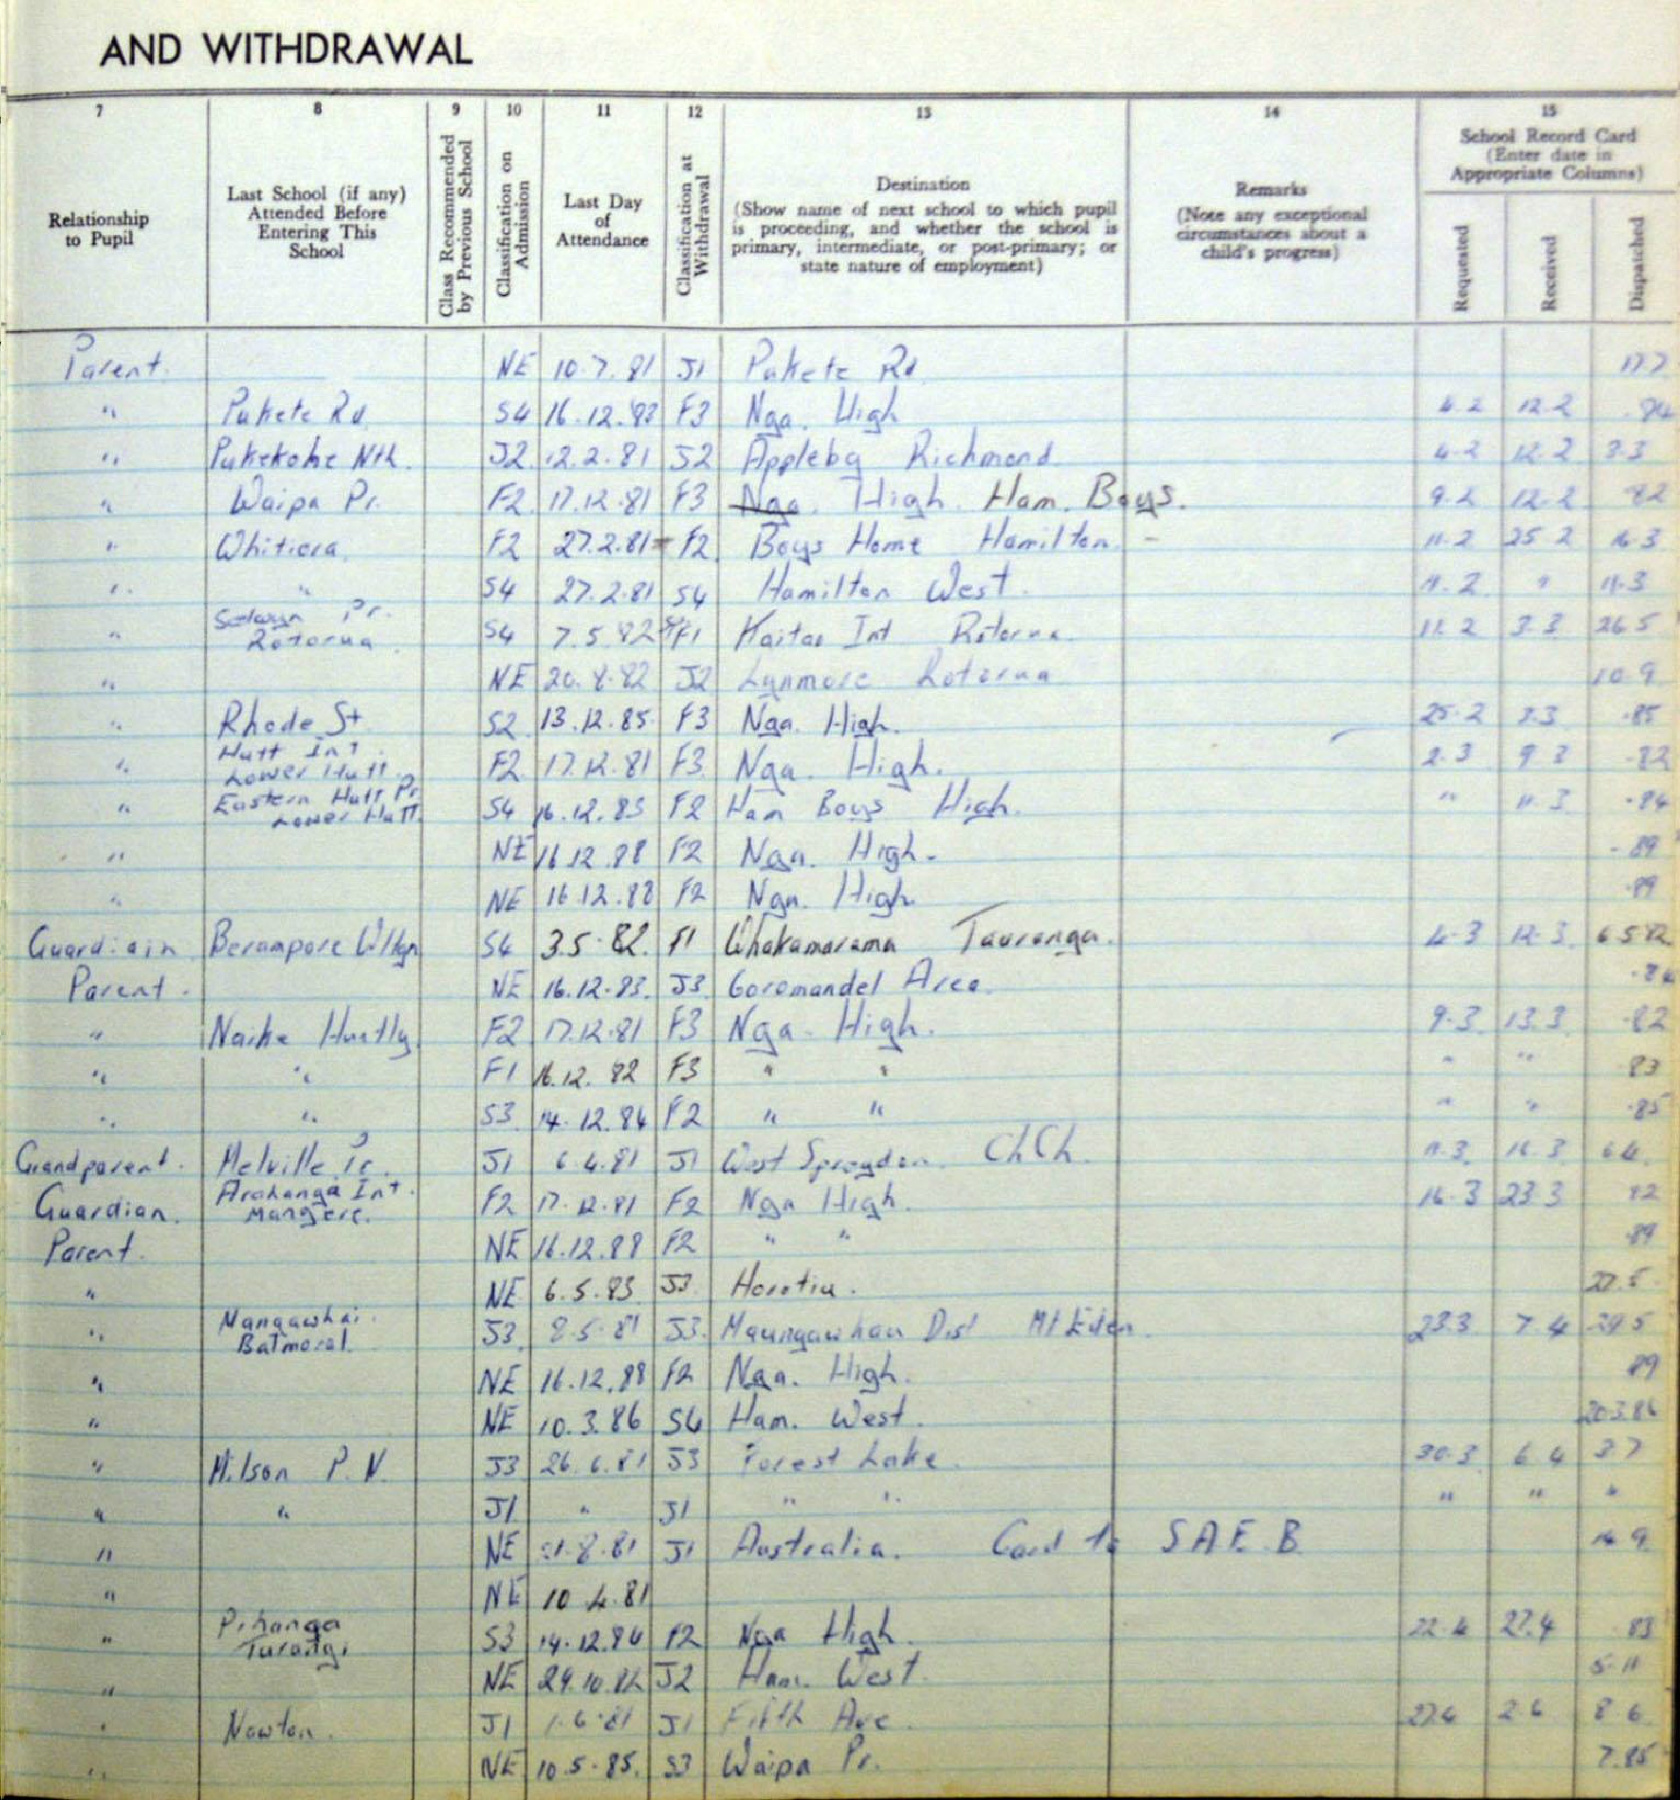 AND WITHDRAWAL
7 8 9 10 11 12 13 14 15
Relationship to Pupil
Last School (if any) Attended Before Entering This School
Class Recommended by Previous School
Classification on Admission
Last Day of Attendance
Classification at Withdrawal
Destination
(Show name of next school to which pupil is proceeding, and whether the school is primary, intermediate, or post-primary; or state nature of employment)
Remarks
(Note any exceptional circumstances about a child's progress)
School Record Card
(Enter date in Appropriate Columns)
Requested Received Dispatched
Parent. NE 10.7.81 J1 Pukete Rd 17.7
" Pukete Rd. S4 16.12.83 F3 Nga. High 4.2 12.2 .84
" Pukekohe Nth. J2 12.2.81 J2 Appleby Richmond 4.2 12.2 3.3
" Waipa Pr. F2 17.12.81 F3 Nga. High. Ham. Boys. 9.2 12.2 .82
" Whitiora F2 27.2.81 F2 Boys Home Hamilton - 11.2 25.2 16.3
" " S4 27.2.81 S4 Hamilton West. 11.2 " 11.3
" Selwyn Pr. Rotorua S4 7.5.82 F1 Kaitao Int Rotorua. 11.2 3.3 26.5
" NE 20.8.82 J2 Lynmore Rotorua 10.9
" Rhode St S2 13.12.85 F3 Nga. High. 25.2 3.3 .85
" Hutt Int. Lower Hutt. F2 17.12.81 F3 Nga. High. 2.3 9.3 .82
" Eastern Hutt Pr. Lower Hutt. S4 16.12.83 F2 Ham Boys High. " 11.3 .84
" NE 16.12.88 F2 Nga. High. .89
" NE 16.12.88 F2 Nga. High. .89
Guardiain Berampore Wltgn S4 3.5.82. F1 Whakamarama Tauranga. 4.3 12.3 6.5.82
Parent. NE 16.12.83. J3 Coromandel Area. .84
" Naike Huntly F2 17.12.81 F3 Nga. High. 9.3 13.3 .82
" " F1 16.12.82 F3 " " " " 83
" " S3 14.12.84 F2 " " " " .85
Grandparent. Melville Pr. J1 6.4.81 J1 West Spreydon ChCh. 11.3. 16.3 6.4.
Guardian. Arahanga Int. Mangere. F2 17.12.81 F2 Nga High. 16.3 23.3 82
Parent. NE 16.12.88 F2 " " .89
" NE 6.5.83 J3 Horotiu. 27.5
" Mangawhai Balmoral J3 8.5.81 J3. Maungawhau Dist Mt Eden. 23.3 7.4 29.5
" NE 16.12.88 F2 Nga. High. 89
" NE 10.3.86 S4 Ham. West. 20.3.86
" Milson P.N. J3 26.6.81 J3 Forest Lake. 30.3 6.4 3.7
" " J1 " J1 " " " " "
" NE 21.8.81 J1 Australia. Card to S.A.E.B. 14.9
" NE 10.4.81
" Pihanga Turangi S3 14.12.84 F2 Nga High. 22.4 27.4 83
" NE 29.10.82 J2 Ham. West. 5.11
" Nawton. J1 1.6.81 J1 Fifth Ave. 27.4 2.6 8.6
" NE 10.5.85. S3 Waipa Pr. 7.85